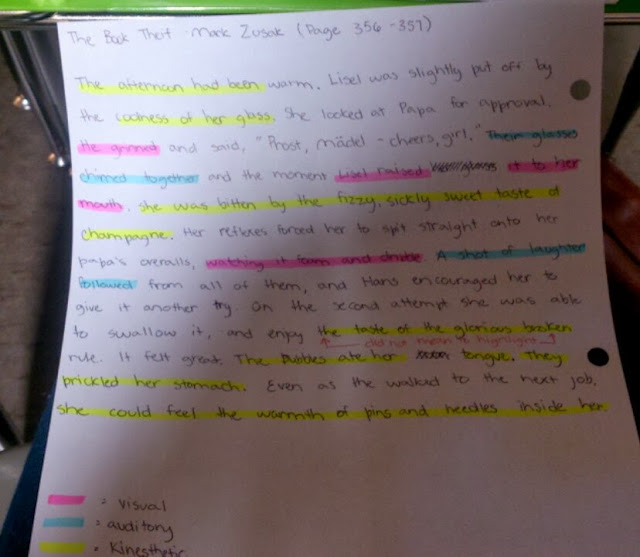 The Book Theif - Mark Zusak (Page 356 - 357)
The afternoon had been warm. Lisel was slightly put off by
the coolness of her glass. She looked at Papa for approval.
He grinned and said, "Prost, mädel - cheers, girl." Their glasses
chimed together and the moment Lisel raised it to her
mouth, she was bitten by the fizzy, sickly sweet taste of
champagne. Her reflexes forced her to spit straight onto her
papa's overalls, watching it foam and dribble. A shot of laughter
followed from all of them, and Hans encouraged her to
give it another try. On the second attempt she was able
to swallow it, and enjoy the taste of the glorious broken
did not mean to highlight
rule. It felt great. The bubbles ate her tongue. They
prickled her stomach. Even as the walked to the next job,
she could feel the warmth of pins and needles inside her.
= visual
= auditory
= Kinesthetic